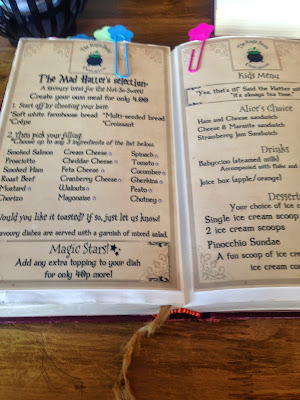 The Mad Hatter's selection
A savoury treat for the Not-So-Sweet!
Create your own meal for only 4.00
1. Start off by choosing your base:
*Soft white farmhouse bread *Multi-seeded bread
*Crêpe *Croissant
2. Then pick your filling.
*Choose up to any 3 ingredients of the list below.
Smoked Salmon Cream Cheese Spinach
Prosciutto Cheddar Cheese Tomato
Smoked Ham Feta Cheese Cucumber
Roast Beef Cranberry Cheese Gherkins
Mustard Walnuts Pesto
Chorizo Mayonaise Chutney
Would you like it toasted? If so, just let us know!
savoury dishes are served with a garnish of mixed salad.
Magic Stars!
Add any extra topping to your dish
for only 40p more!
Kids Menu
"Yes, that's it!" Said the Hatter
"it's always tea time."
Alice's Choice
Ham and Cheese sandwich
Cheese & Marmite sandwich
Strawberry Jam Sandwich
Drinks
Babyccino (steamed milk)
Accompanied with flake and
Juice box (apple/orange)
Desserts
Your choice of ice
Single ice cream scoop
2 ice cream scoops
Pinocchio Sundae
A fun scoop of ice
ice cream